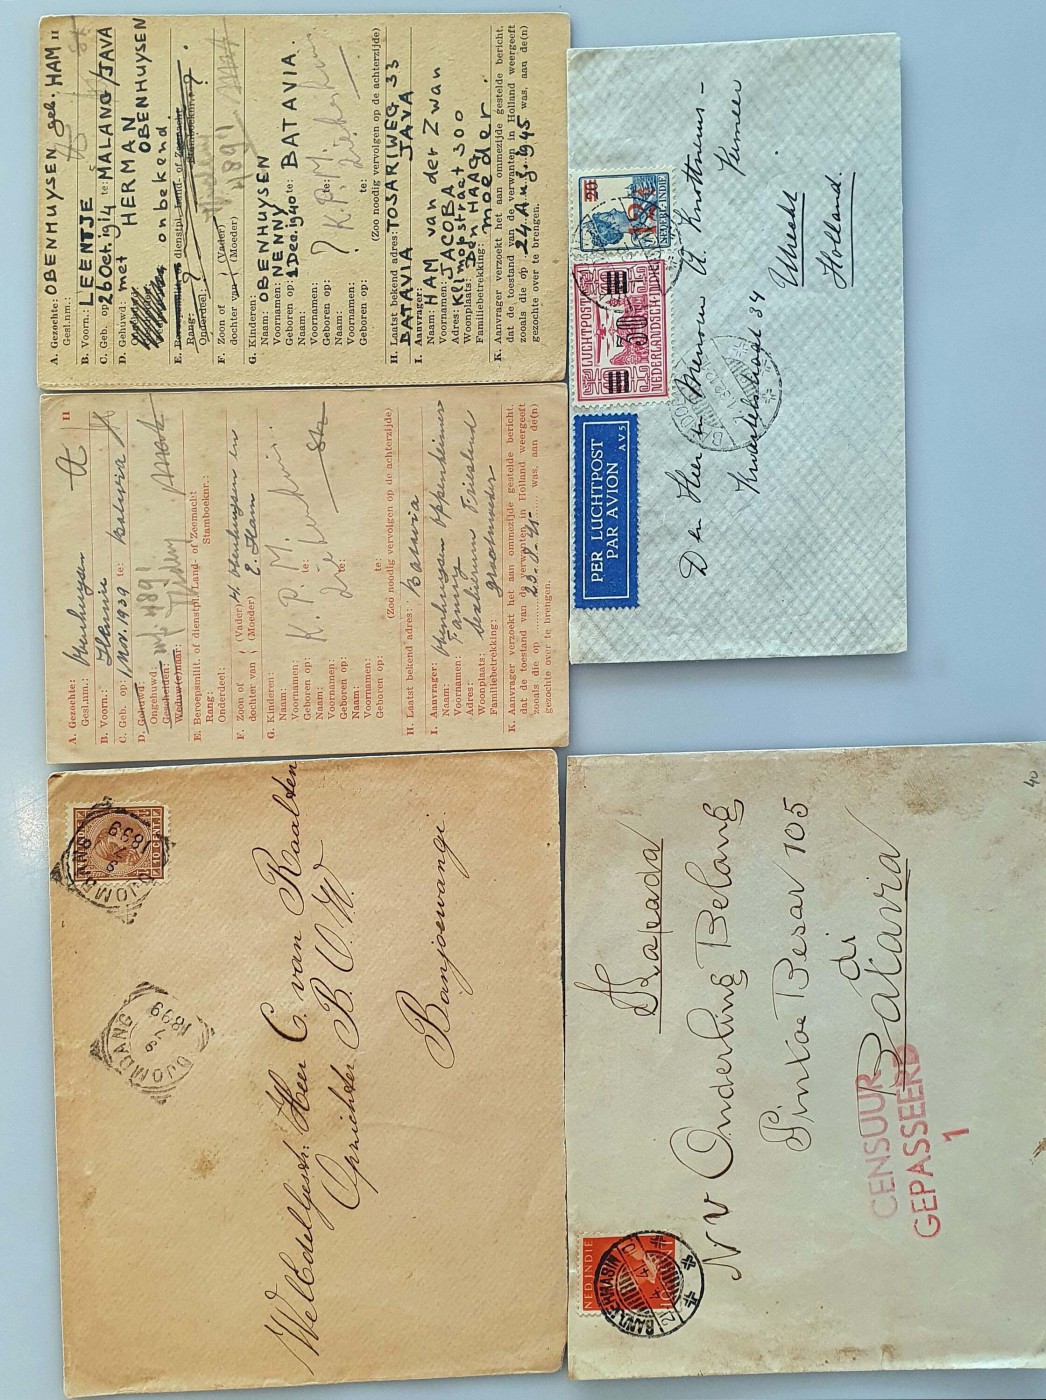 II
A. Gezochte: OBENHUYSEN geb. HAM
Gesl.nm.:
B. Voorn.: LEENTJE
C. Geb. op 26 Oct. 1914 te: MALANG/JAVA
D. Gehuwd: met HERMAN
OBENHUYSEN
onbekend
E. Beroepsmilit. of dienstpl. Land- of Zeemacht
Rang: ?
Stamboeknr.: ?
Onderdeel:
F. Zoon of (Vader)
dochter van (Moeder)
4891
G. Kinderen:
Naam: OBENHUYSEN
Voornamen: NENNY
Geboren op: 1 Dec. 1940 te: BATAVIA.
Naam:
Voornamen:
Geboren op: ? te:
K.P.M.
Naam:
Voornamen:
Geboren op: te:
(Zoo noodig vervolgen op de achterzijde)
H. Laatst bekend adres: TOSARIWEG 33
BATAVIA JAVA
I. Aanvrager
Naam: HAM van der Zwan
Voornamen: JACOBA
Adres: Klimopstraat 300
Woonplaats: Den HAAG
Familiebetrekking: moeder.
K. Aanvrager verzoekt het aan ommezijde gestelde bericht,
dat de toestand van de verwanten in Holland weergeeft
zooals die op 24 Aug. 1945 was, aan de(n)
gezochte over te brengen.
II
A. Gezochte:
Gesl.nm.: Obenhuysen
B. Voorn.: Hannie
C. Geb. op: Nov. 1939 te: Batavia
D. Gehuwd:
Ongehuwd:
4891
Gescheiden:
Weduw(e)naar:
E. Beroepsmilit. of dienstpl. Land- of Zeemacht
Rang: Stamboeknr.:
Onderdeel:
F. Zoon of (Vader) H. Obenhuysen en
dochter van (Moeder) E. Ham
G. Kinderen:
Naam:
Voornamen:
Geboren op: te:
K.P.M.
Naam:
Voornamen:
Geboren op: te:
Naam:
Voornamen:
Geboren op: te:
(Zoo noodig vervolgen op de achterzijde)
H. Laatst bekend adres: Batavia
I. Aanvrager:
Naam: Obenhuysen Oppenheimer
Voornamen: Fanny
Adres:
Woonplaats: Friesland
Familiebetrekking: grootmoeder
K. Aanvrager verzoekt het aan ommezijde gestelde bericht,
dat de toestand van de verwanten in Holland weergeeft
zooals die op 23-8-45 was, aan de(n)
gezochte over te brengen.
PER LUCHTPOST
PAR AVION
AV5
LUCHTPOST
30
NEDERLANDSCH-INDIE
20
12½
NEDERL. INDIE
BANDOENG
Den Heer en Mevrouw A. Knottnerus-
Kemeer
34
Utrecht
Holland.
10 CENT
DJOMBANG
8 7
1899
DJOMBANG
8 7
1899
WelEdelGestr. Heer C. van Raalten
Opzichter B.O.W.
Banjoewangi.
40
NED. INDIE
10
BANDJERMASIN
Kapada
NV Onderling Belang
Pintoe Besar 105
di
Batavia
CENSUUR
GEPASSEERD
1